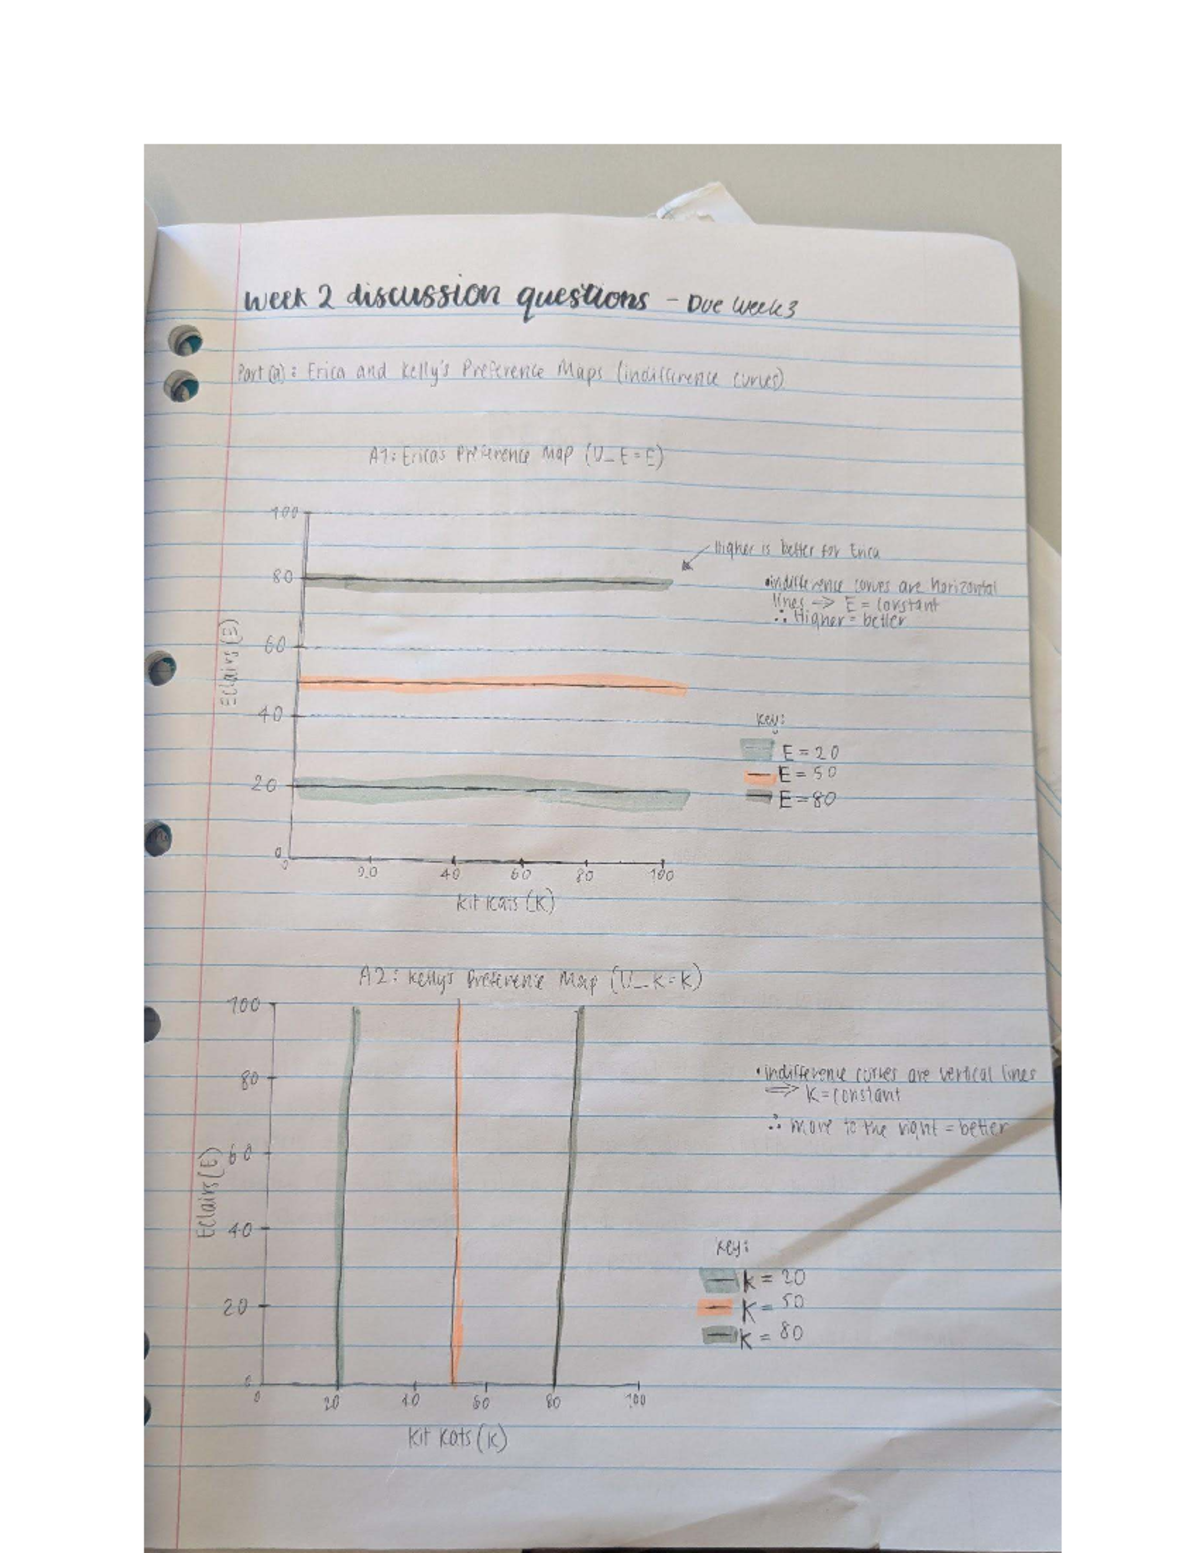 Week 2 discussion questions - Due Week 3
Part (a): Erica and Kelly's Preference Maps (indifference curves)
A1: Erica's Preference Map (U_E = E)
100
Higher is better for Erica
80
•indifference curves are horizontal
lines → E = constant
∴ Higher = better
60
Eclairs (E)
40
Key:
E = 20
E = 50
E = 80
20
0
0 20 40 60 80 100
Kit Kats (K)
A2: Kelly's Preference Map (U_K = K)
100
80
•indifference curves are vertical lines
⇒ K = constant
∴ more to the right = better
60
Eclairs (E)
40
Key:
K = 20
K = 50
K = 80
20
0
0 20 40 60 80 100
Kit Kats (K)